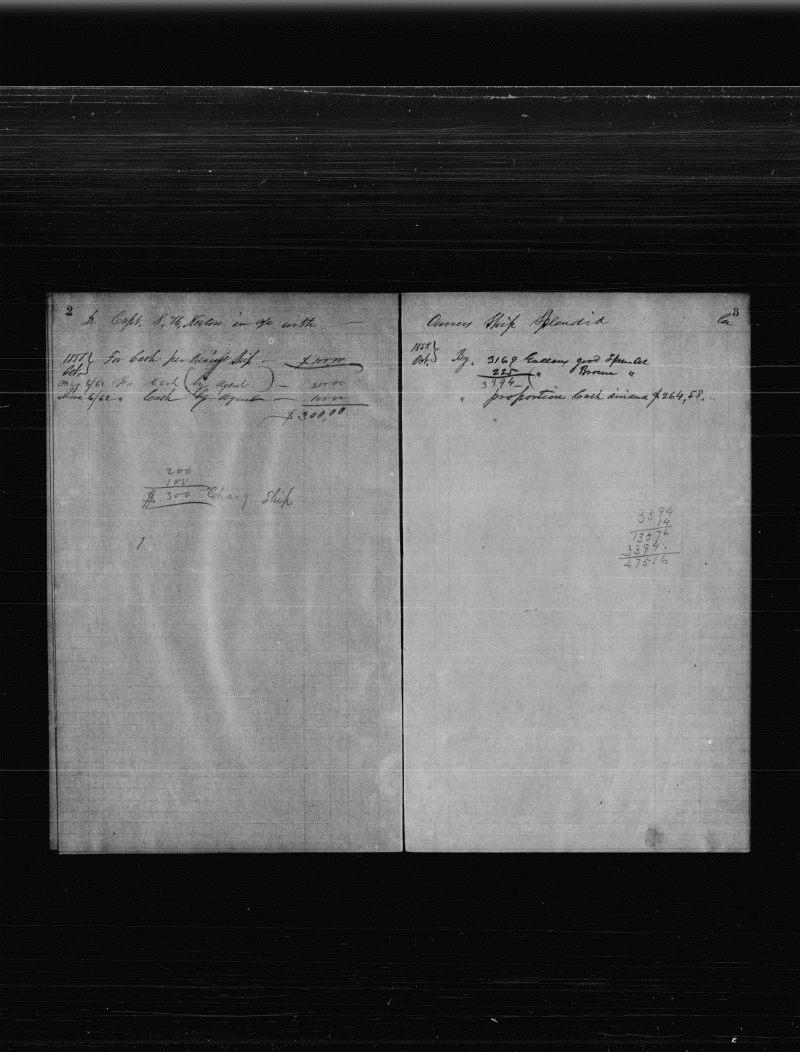 2
Dr Capt. S. H. Norton in a/c with
1858 Oct. } For Cash per Ship — $
May 6/62 Cash ( by agent ) — 200 00
6/62 " Cash by agent — 100 00
$300,00
200
100
$ 300 Ship
3
Owners Ship Splendid Cr
1858 Oct. } By 3169 Gallons good Sperm Oil
225 " Brown "
3394
" proportion Cash dividend $264,58
3394
14
13576
3394
47516